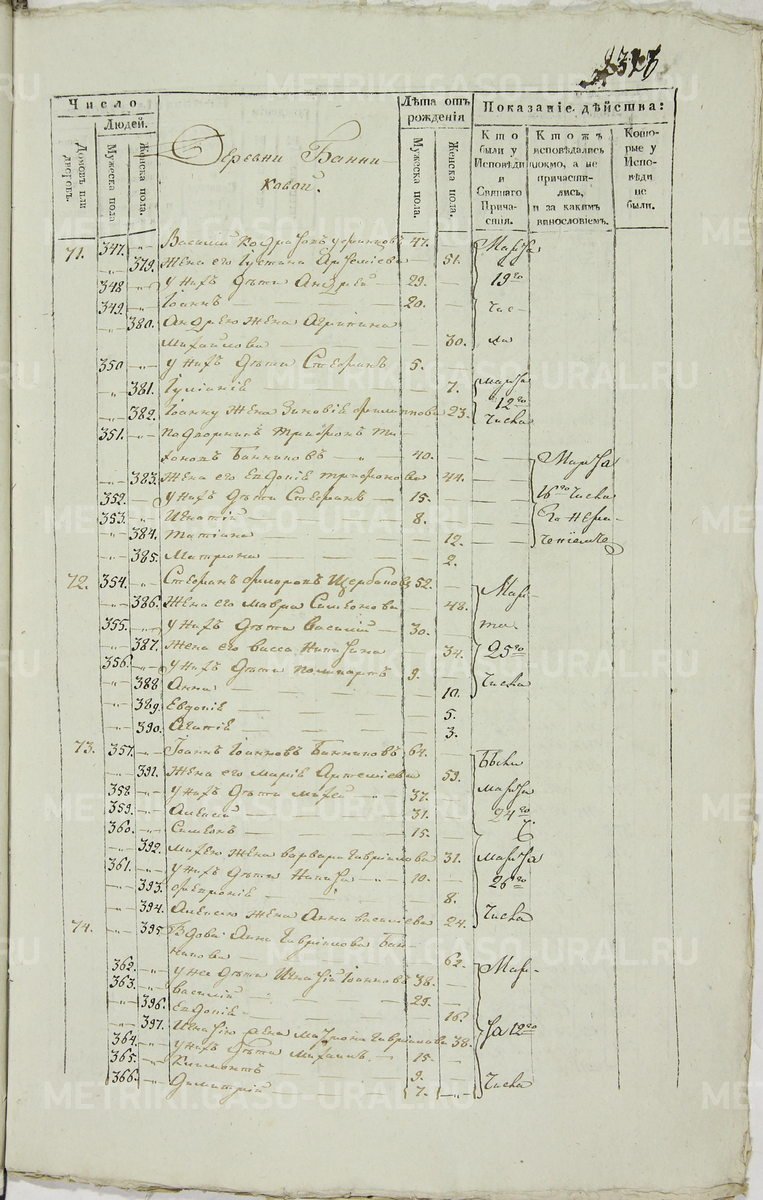 Число
Людей.
Домовъ или дворовъ.
Мужеска пола
Женска пола.
Деревни Банни-
ковой.
Лѣта отъ рожденія
Мужеска пола.
Женска пола.
Показаніе дѣйства:
Кто были у Исповѣди и Святаго Причастія.
Ктожъ исповѣдались токмо, а не причастились, и за какимъ винословіемъ.
Которые у Исповѣди не были.
71. 347. Василій 47.
379. Жена его Іустина Артеміева 51.
348 У нихъ дѣти Андрей 29.
349. Іоаннъ 20.
380. Андрею жена Агрипина
Михайлова 30.
350 У нихъ дѣти Стефанъ 5.
381. Іуліанія 7.
382. Іоанну жена Зиновія Филиппова 23.
351. Подворникъ Трифонъ Ти-
хоновъ Банниковъ 40.
383. Жена его Евдокія Трифонова 44.
352. У нихъ дѣти Стефанъ 15.
353. Игнатій 8.
384. Татіана 12.
385. Матрона 2.
72. 354. Стефанъ Щербаковъ 52.
386. Жена его Мавра Симеонова 48.
355. У нихъ дѣти Василій 30.
387. Жена его Васса Никитина 34.
356. У нихъ дѣти 9.
388 Анна 10.
389. Евдокія 5.
390. Агапія 3.
73. 357. Іоаннъ Іоанновъ Банниковъ 64.
391. Жена его Марія Артеміева 59.
358 У нихъ дѣти 37.
359. Алексій 31.
360. Симеонъ 15.
392. жена Варвара Гавріилова 31.
361. У нихъ дѣти Никита 10.
393. Февронія 8.
394. Алексію жена Анна Васильева 24.
74. 395 Вдова Анна Гавріилова Бан-
никова 62.
362. У нея дѣти Игнатій Іоанновъ 38.
363. Василій 29.
396. Евдокія 16.
397. Игнатію жена Матрона Гавріилова 38.
364. У нихъ дѣти Михаилъ 15.
365. Климонтъ 9.
366. Димитрій 7.
Марта
19го
Чис-
ла
Марта
12го
Числа
Марта
16го Числа
За нера-
ченіемъ
Мар-
та
25го
Числа
Были
Марта
24го
Марта
26го
Числа
Мар-
та 12го
Числа
METRIKI.GASO-URAL.RU